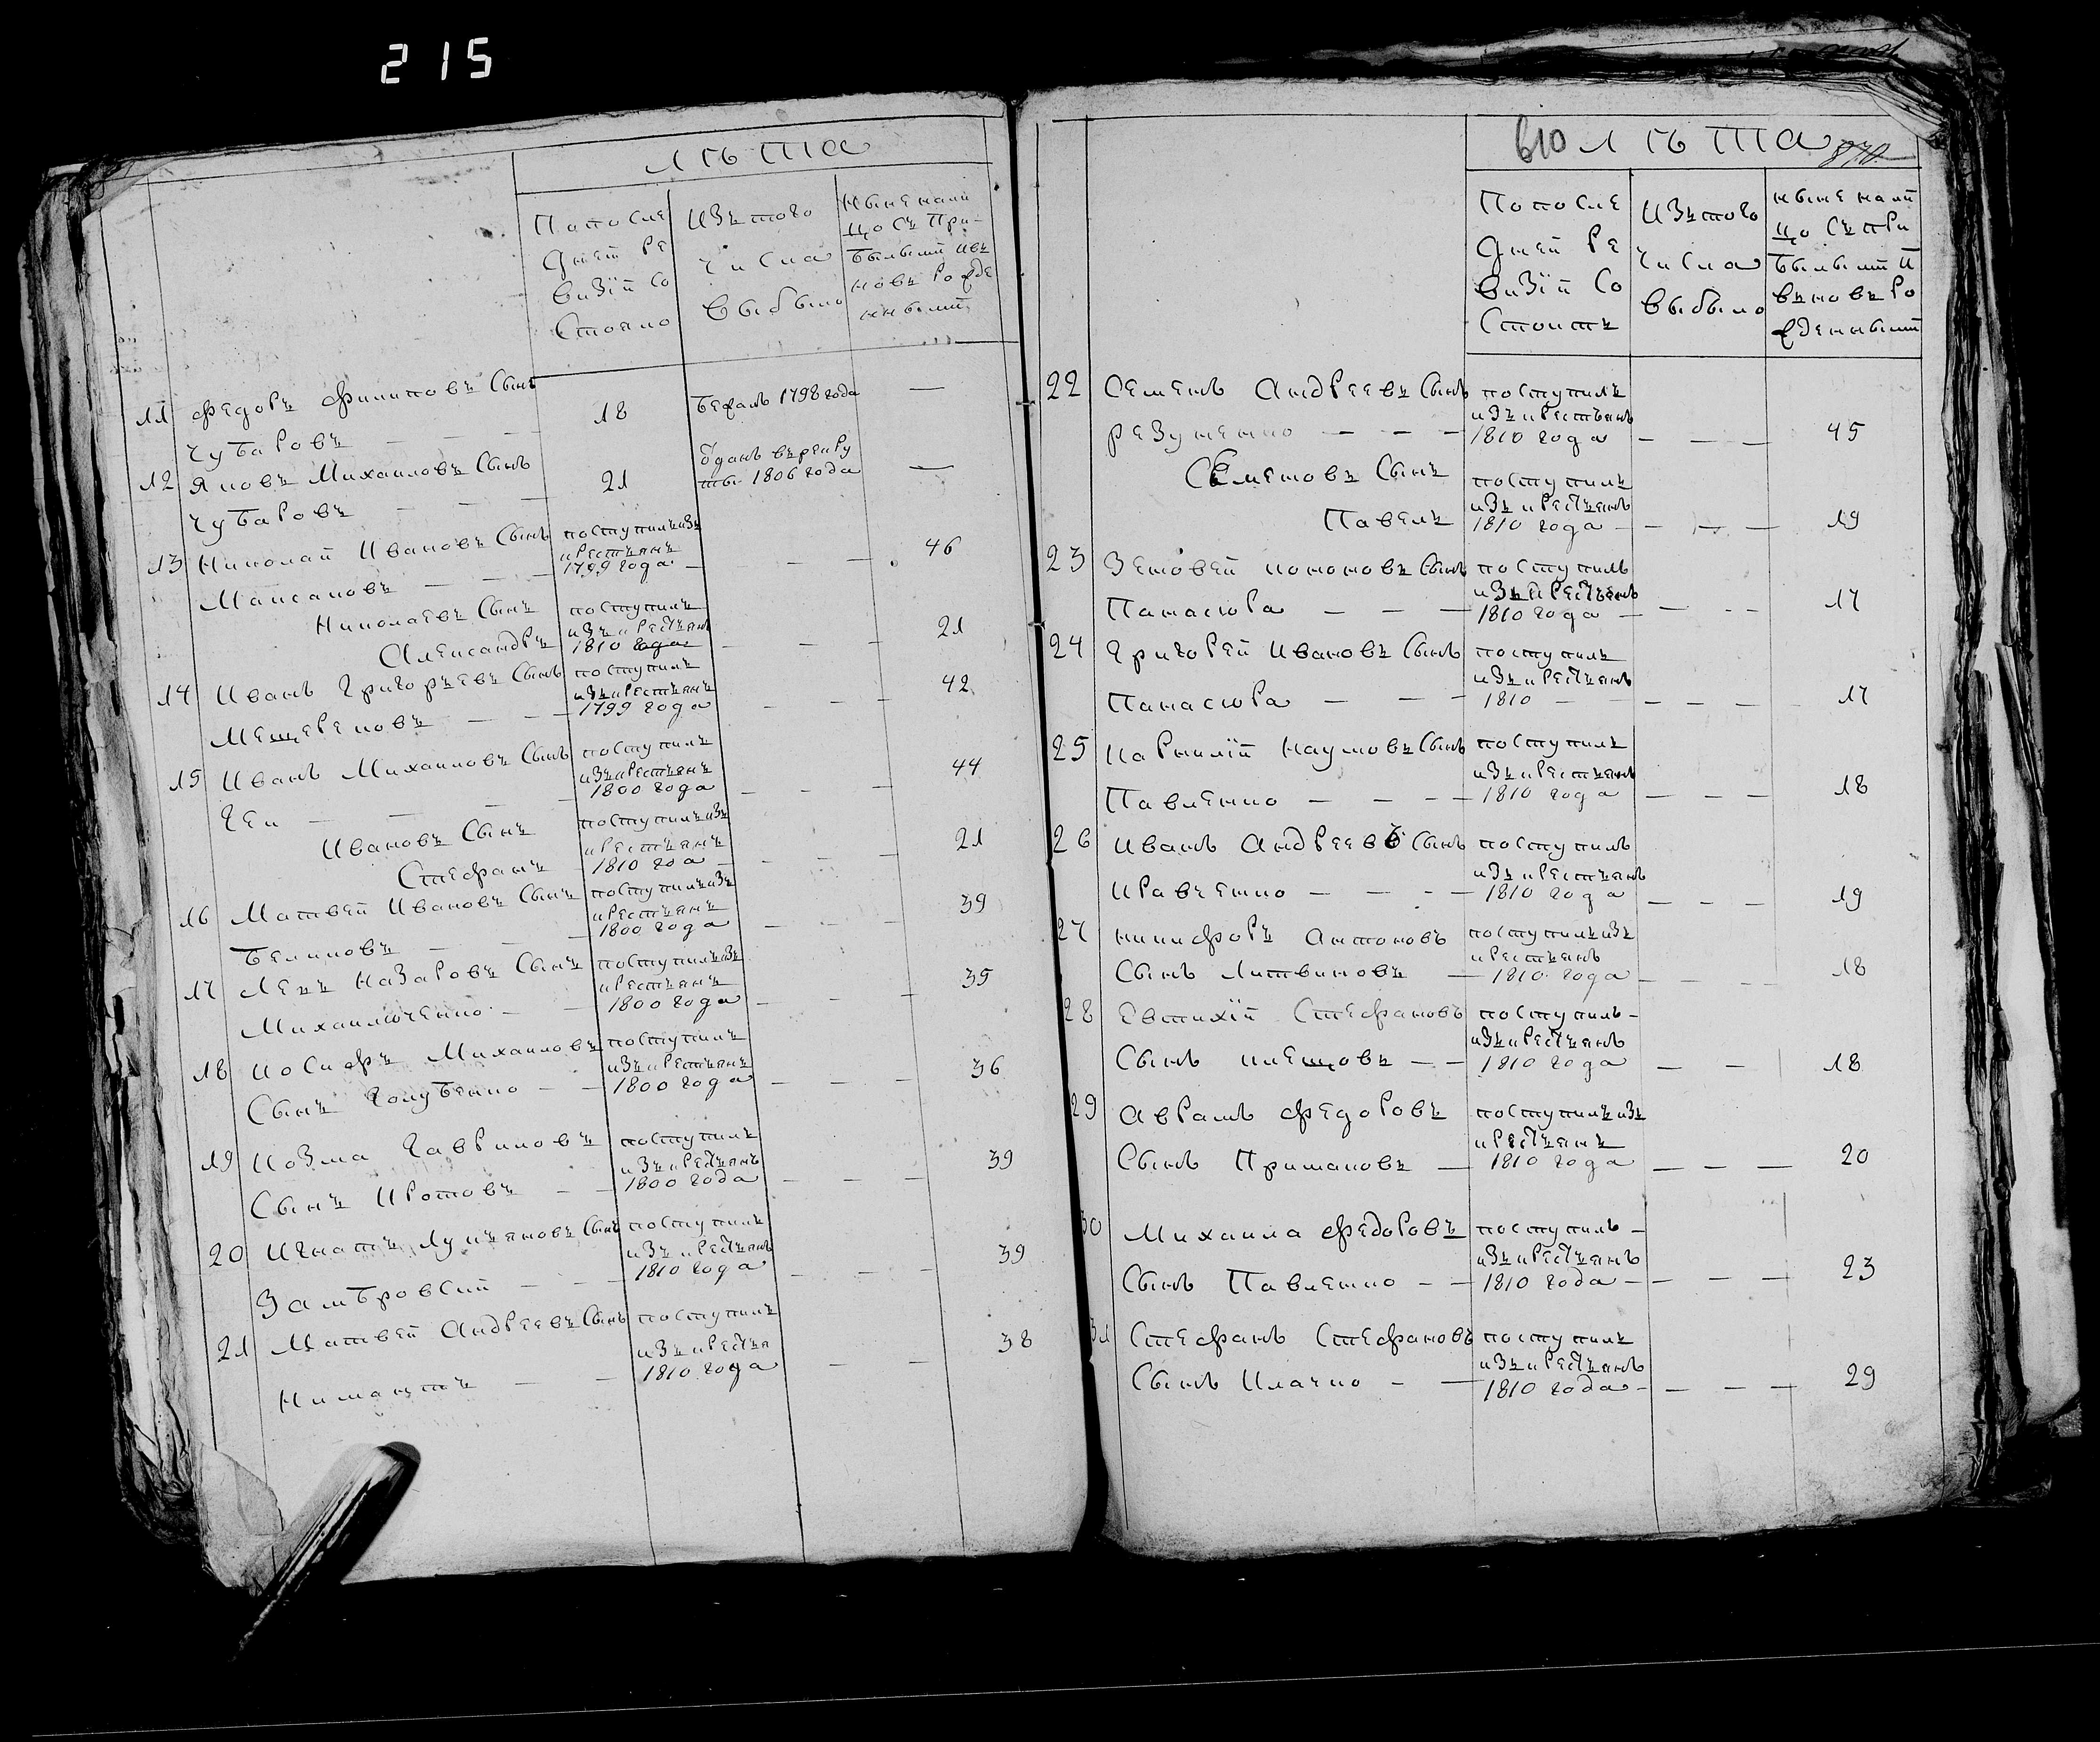 215
лѣта
По после
дней ре
визiи со
стояло
Изъ того
числа
выбыло
Ныне нали
цо съ при-
былыми и въ
новь рожде
нными
11 Федоръ Филиповъ сынъ
Чубаровъ — — —
18
бежалъ 1798 года
—
12 Яковъ Михаиловъ сынъ
Чубаровъ — — —
21
одանъ въ рекру
ты 1806 года
—
13 Николай Ивановъ сынъ
Маисаковъ — — —
поступилъ изъ
крестьянъ
1799 года — — — —
46
Николаевъ сынъ
Александръ
поступилъ
изъ крестьянъ
1810 года — — —
21
14 Иванъ Григорьевъ сынъ
Мещерековъ — — —
поступилъ
изъ крестьянъ
1799 года — — —
42
15 Иванъ Михаиловъ сынъ
Чеи — — — —
поступилъ
изъ крестьянъ
1800 года — — —
44
Ивановъ сынъ
Стефанъ
поступилъ изъ
крестьянъ
1810 гоа — — — —
21
16 Матвей Ивановъ сынъ
Беликовъ — — —
поступилъ изъ
крестьянъ
1800 года — — —
39
17 Лекъ Назаровъ сынъ
Михаилюченко — —
поступилъ изъ
крестьянъ
1800 года — — —
35
18 Иосифъ Михаиловъ
сынъ Голубенко — —
поступилъ
изъ крестьянъ
1800 года — — —
36
19 Козма Гавриловъ
сынъ Кротовъ — —
поступилъ
изъ крестьянъ
1800 года — — —
39
20 Игнатъ Лукъяновъ сынъ
Замбровски — — —
поступилъ
изъ крестьянъ
1810 года — — —
39
21 Матвей Андреевъ сынъ
Никмантъ — —
поступилъ
изъ крестья
1810 года — —
38
610 лѣта 870
По после
дней ре
визiи со
стоитъ
Изъ того
числа
выбыло
ныне нали
цо съ при
былыми и
въновь ро
жденными
22 Семенъ Андреевъ сынъ
Резуненко — — —
поступилъ
изъ крестьянъ
1810 года — — —
45
Семеновъ сынъ
Павелъ
поступилъ
изъ крестьянъ
1810 года — — — —
19
23 Зеновей Кононовъ сынъ
Панасюра — — —
поступилъ
изъ крестьянъ
1810 года — — — —
17
24 Григорей Ивановъ сынъ
Панасюра — — —
поступилъ
изъ крестьянъ
1810 — — — — —
17
25 Карнилiй Наумовъ сынъ
Павленко — — —
поступилъ
изъ крестьянъ
1810 года — — —
18
26 Иванъ Андреевъ сынъ
Кравченко — — —
поступилъ
изъ крестьянъ
1810 года — — —
19
27 Никифоръ Антоновъ
сынъ Литвиновъ —
поступилъ изъ
крестьянъ
1810 года — — —
18
28 Евтихiй Стефановъ
сынъ Клещовъ — —
поступилъ —
изъ крестьянъ
1810 года — —
18
29 Аврамъ Федоровъ
сынъ Примаковъ —
поступилъ изъ
крестьянъ
1810 года — — —
20
30 Михаила Федоровъ
сынъ Павленко — —
поступилъ —
изъ крестьянъ
1810 года — — — —
23
31 Стефанъ Стефановъ
сынъ Клачко — —
поступилъ
изъ крестьянъ
1810 года — — — —
29